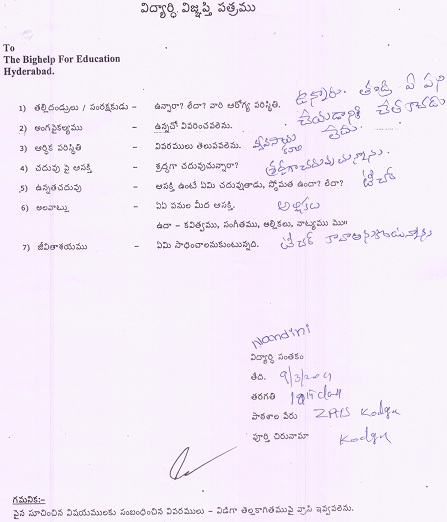 విద్యార్ధి విజ్ఞప్తి పత్రము
To
The Bighelp For Education
Hyderabad.
1) తల్లిదండ్రులు / సంరక్షకుడు – ఉన్నారా? లేదా? వారి ఆరోగ్య పరిస్థితి. ఉన్నారు. తండ్రి ఏ పని
చేయడానికి చేతకాదు
2) అంగవైకల్యము – ఉన్నచో వివరించవలెను. లేదు
3) ఆర్థిక పరిస్థితి – వివరములు తెలుపవలెను. వ్యవసాయ కూలి
4) చదువు పై ఆసక్తి – శ్రద్ధగా చదువుచున్నారా? శ్రద్ధగా చదువుచున్నాను.
5) ఉన్నతచదువు – ఆసక్తి ఉంటే ఏమి చదువుతాడు, స్తోమత ఉందా? లేదా? టీచర్
6) అలవాట్లు – ఏఏ పనుల మీద ఆసక్తి. అల్లికలు
ఉదా – కవిత్వము, సంగీతము, అల్లికలు, నాట్యము మొ॥
7) జీవితాశయము – ఏమి సాధించాలనుకుంటున్నది. టీచర్ కావాలనుకుంటున్నాను
Nandini
విద్యార్థి సంతకం
తేది. 9/3/2011
తరగతి 10th class
పాఠశాల పేరు ZPHS Kodgu
పూర్తి చిరునామా Kodgu
గమనిక:-
పైన సూచించిన విషయములకు సంబంధించిన వివరములు – విడిగా తెల్లకాగితముపై వ్రాసి ఇవ్వవలెను.